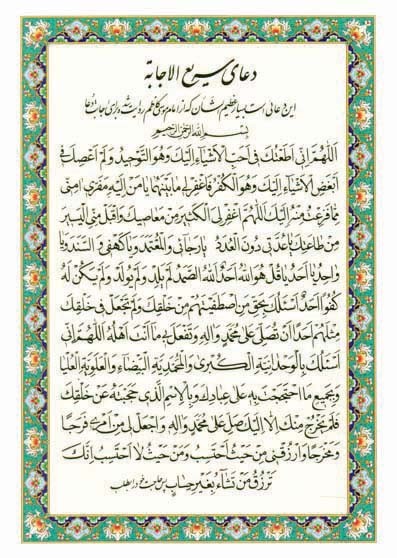 دعای سریع الاجابة
این دعائی است بسیار عظیم الشأن که از امام موسی کاظم روایت شده برای اجابت دعا
بسم الله الرحمن الرحیم
اَللّٰهُمَّ اِنّی اَطَعْتُكَ فی اَحَبِّ الْاَشْیاءِ اِلَیْكَ وَهُوَ التَّوْحیدُ وَلَمْ اَعْصِكَ فی
اَبْغَضِ الْاَشْیاءِ اِلَیْكَ وَهُوَ الْكُفْرُ فَاغْفِرْ لی ما بَیْنَهُما یا مَنْ اِلَیْهِ مَفَرّی امِنّی
مِمّا فَزِعْتُ مِنْهُ اِلَیْكَ اَللّٰهُمَّ اغْفِرْ لِیَ الْكَثیرَ مِنْ مَعاصیكَ وَاقْبَلْ مِنّی الْیَسیرَ
مِنْ طاعَتِكَ یا عُدَّتی دُونَ الْعُدَدِ یا رَجائی وَالْمُعْتَمَدَ وَیا كَهْفی وَالسَّنَدَ وَیا
واحِدُ یا اَحَدُ یا قُلْ هُوَ اللهُ اَحَدٌ اَللهُ الصَّمَدُ لَمْ یَلِدْ وَلَمْ یُولَدْ وَلَمْ یَكُنْ لَهُ
كُفُواً اَحَدٌ اَسْئَلُكَ بِحَقِّ مَنِ اصْطَفَیْتَهُمْ مِنْ خَلْقِكَ وَلَمْ تَجْعَلْ فی خَلْقِكَ
مِثْلَهُمْ اَحَداً اَنْ تُصَلِّیَ عَلی مُحَمَّدٍ وَالِهِ وَتَفْعَلَ بی ما اَنْتَ اَهْلُهُ اَللّٰهُمَّ اِنّی
اَسْئَلُكَ بِالْوَحْدانِیَّةِ الْكُبْری وَالْمُحَمَّدِیَّةِ الْبَیْضاءِ وَالْعَلَوِیَّةِ الْعُلْیا
وَبِجَمیعِ مَا احْتَجَجْتَ بِهِ عَلی عِبادِكَ وَبِالْاِسْمِ الَّذی حَجَبْتَهُ عَنْ خَلْقِكَ
فَلَمْ یَخْرُجْ مِنْكَ اِلّا اِلَیْكَ صَلِّ عَلی مُحَمَّدٍ وَالِهِ وَاجْعَلْ لی مِنْ اَمْری فَرَجاً
وَمَخْرَجاً وَارْزُقْنی مِنْ حَیْثُ اَحْتَسِبُ وَمِنْ حَیْثُ لا اَحْتَسِبُ اِنَّكَ
تَرْزُقُ مَنْ تَشاءُ بِغَیْرِ حِسابٍ پس حاجت خود را بطلب